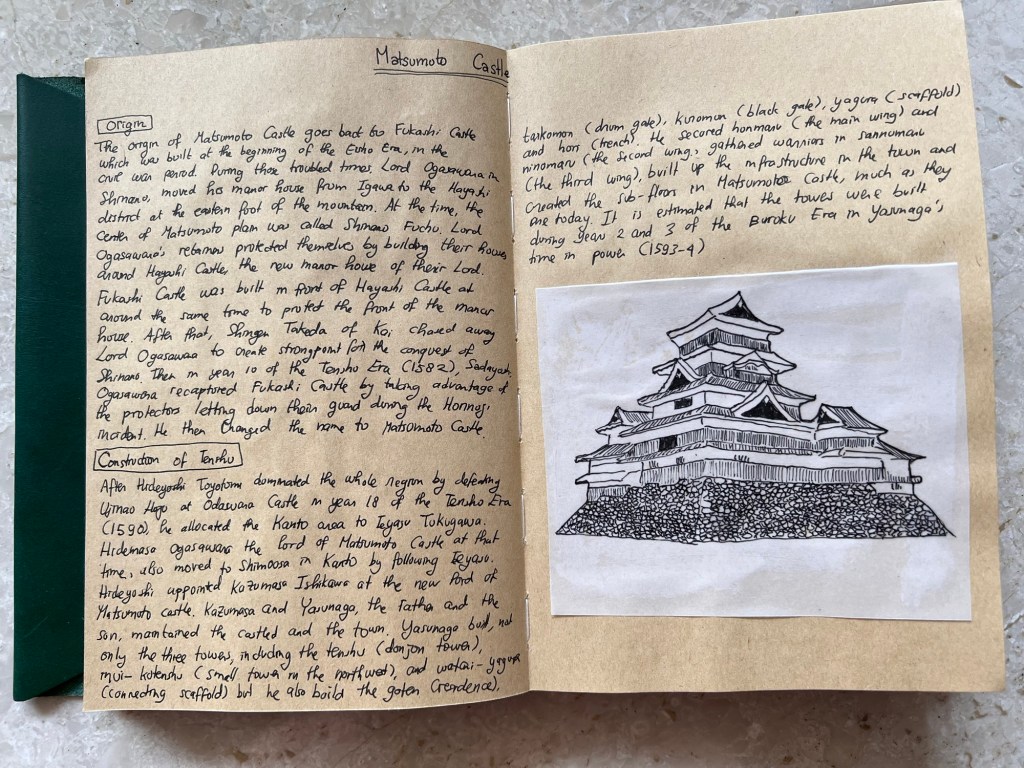 Matsumoto Castle
Origin
The origin of Matsumoto Castle goes back to Fukashi Castle
which was built at the beginning of the Eisho Era, in the
civil war period. During those troubled times, Lord Ogasawara in
Shinano, moved his manor house from Igawa to the Hayashi
district at the eastern foot of the mountain. At the time, the
center of Matsumoto plain was called Shinano Fuchu. Lord
Ogasawara's retainers protected themselves by building their houses
around Hayashi Castle, the new manor house of their Lord.
Fukashi Castle was built in front of Hayashi Castle at
around the same time to protect the front of the manor
house. After that, Shingen Takeda of Kai chased away
Lord Ogasawara to create strongpoint for the conquest of
Shinano. Then in year 10 of the Tensho Era (1582), Sadayoshi
Ogasawara recaptured Fukashi Castle by taking advantage of
the protectors letting down their guard during the Honnoji
incident. He then changed the name to Matsumoto Castle.
Construction of Tenshu
After Hideyoshi Toyotomi dominated the whole region by defeating
Ujinao Hojo at Odawara Castle in year 18 of the Tensho Era
(1590), he allocated the Kanto area to Ieyasu Tokugawa.
Hidemasa Ogasawara the lord of Matsumoto Castle at that
time, also moved to Shimoosa in Kanto by following Ieyasu.
Hideyoshi appointed Kazumasa Ishikawa at the new lord of
Matsumoto castle. Kazumasa and Yasunaga, the father and the
son, maintained the castled and the town. Yasunaga built, not
only the three towers, including the tenshu (donjon tower),
inui-kotenshu (small tower in the northwest), and watari-yagura
(connecting scaffold) but he also build the goten (rendence),
taikomon (drum gate), kuromon (black gate), yagura (scaffold)
and hori (trench). He secored honmaru (the main wing) and
ninomaru (the second wing), gathered warriors in sannomaru
(the third wing), built up the infrastructure in the town and
created the sub-floors in Matsumoto Castle, much as they
are today. It is estimated that the towers were built
during year 2 and 3 of the Bunroku Era in Yasunaga's
time in power (1593-4)